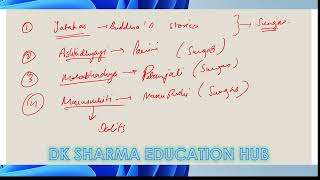 ① Jatakas → Buddha's stories → Sungas.
② Ashtadhyayi → Panini (Sungas)
③ Mahabhashya → Patanjali (Sungas)
④ Manusmriti → (Sungas)
Dalits
DK SHARMA EDUCATION HUB